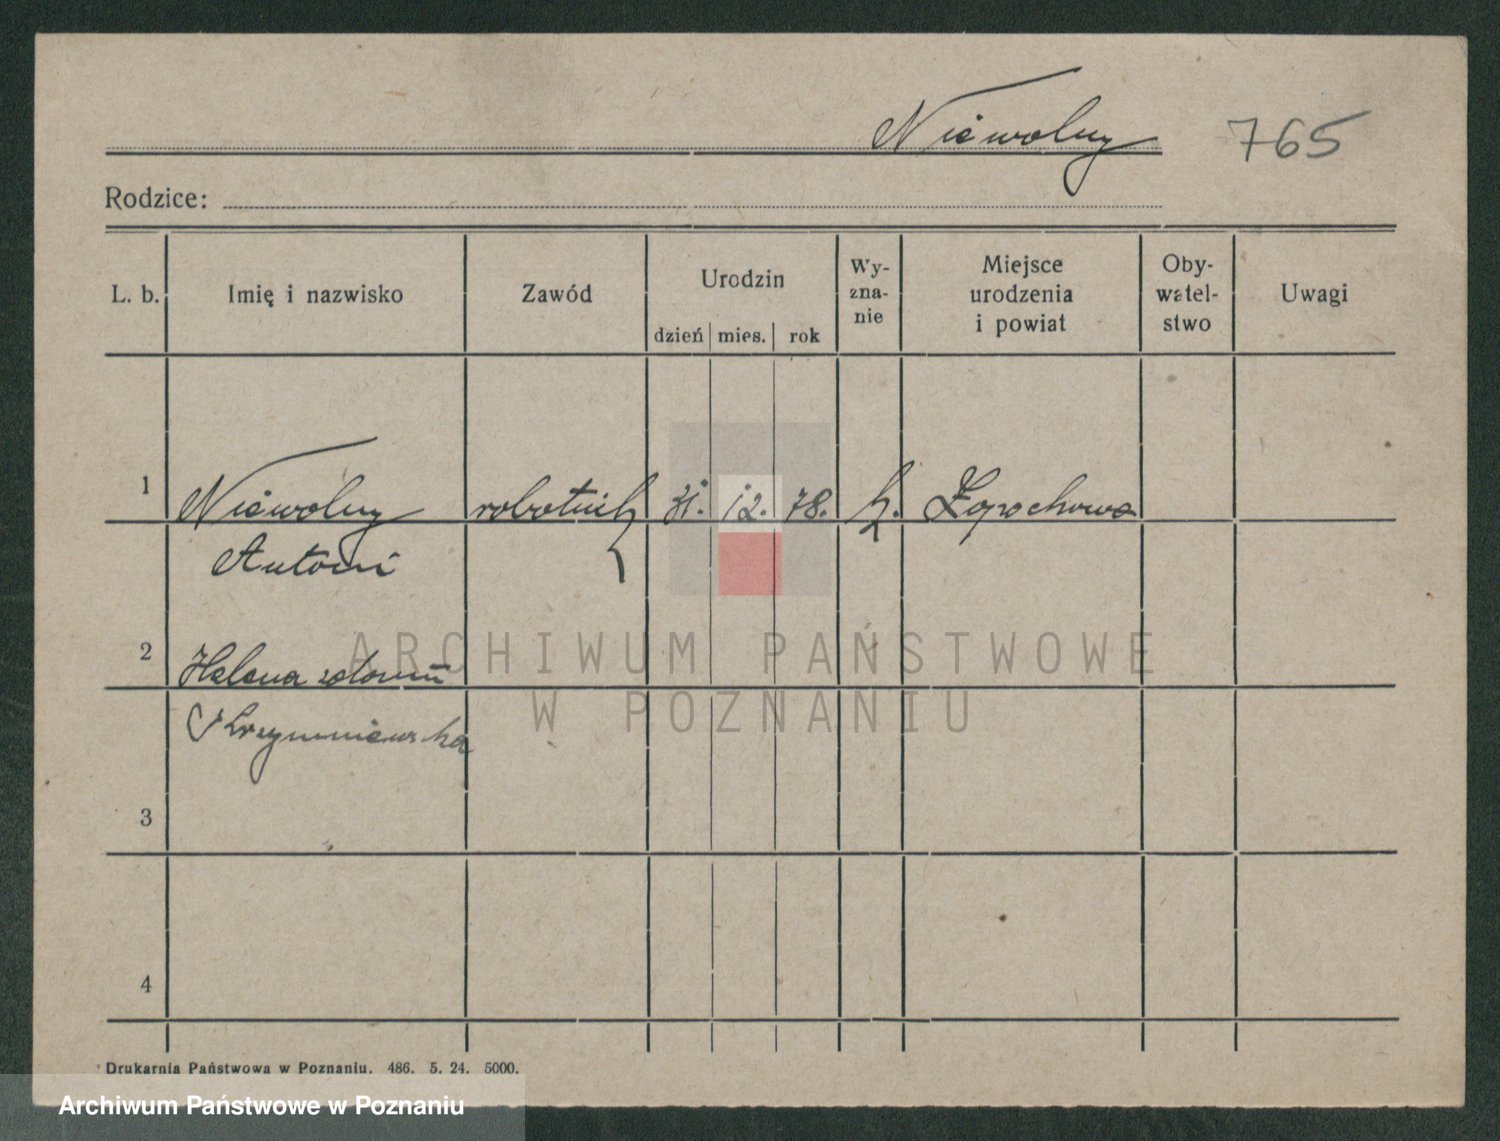 Niewolny 765
Rodzice:
L. b. Imię i nazwisko Zawód Urodzin Wy-zna-nie Miejsce urodzenia i powiat Oby-watel-stwo Uwagi
dzień mies. rok
1 Niewolny robotnik 31. 12. 78. k.
Antoni
2 Helena
3
4
ARCHIWUM PAŃSTWOWE
W POZNANIU
Drukarnia Państwowa w Poznaniu. 486. 5. 24. 5000.
Archiwum Państwowe w Poznaniu